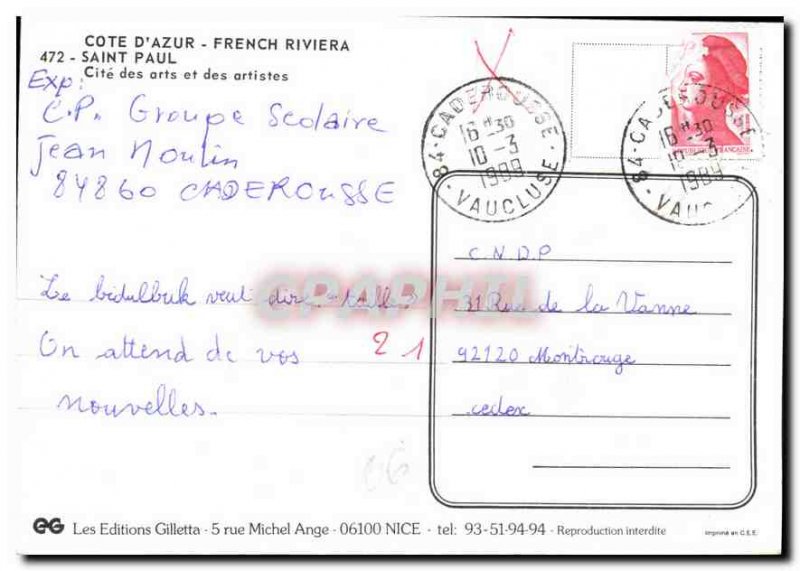 COTE D'AZUR - FRENCH RIVIERA
472 - SAINT PAUL
Cité des arts et des artistes
Exp:
C.P. Groupe Scolaire
Jean Moulin
84860 CADEROUSSE
Le bidulbuk veut dire
On attend de vos
nouvelles.
21
84 · CADEROUSSE ·
16 H 30
10 - 3
1989
- VAUCLUSE -
84 · CADEROUSSE
16 H 30
10 - 3
1989
- VAUC
REPUBLIQUE FRANÇAISE
CPAPHIL
C.N.D.P
31 Rue de la Vanne
92120 Montrouge
cedex
EG Les Editions Gilletta - 5 rue Michel Ange - 06100 NICE - tel: 93-51-94-94 - Reproduction interdite
Imprimé en C.E.E.